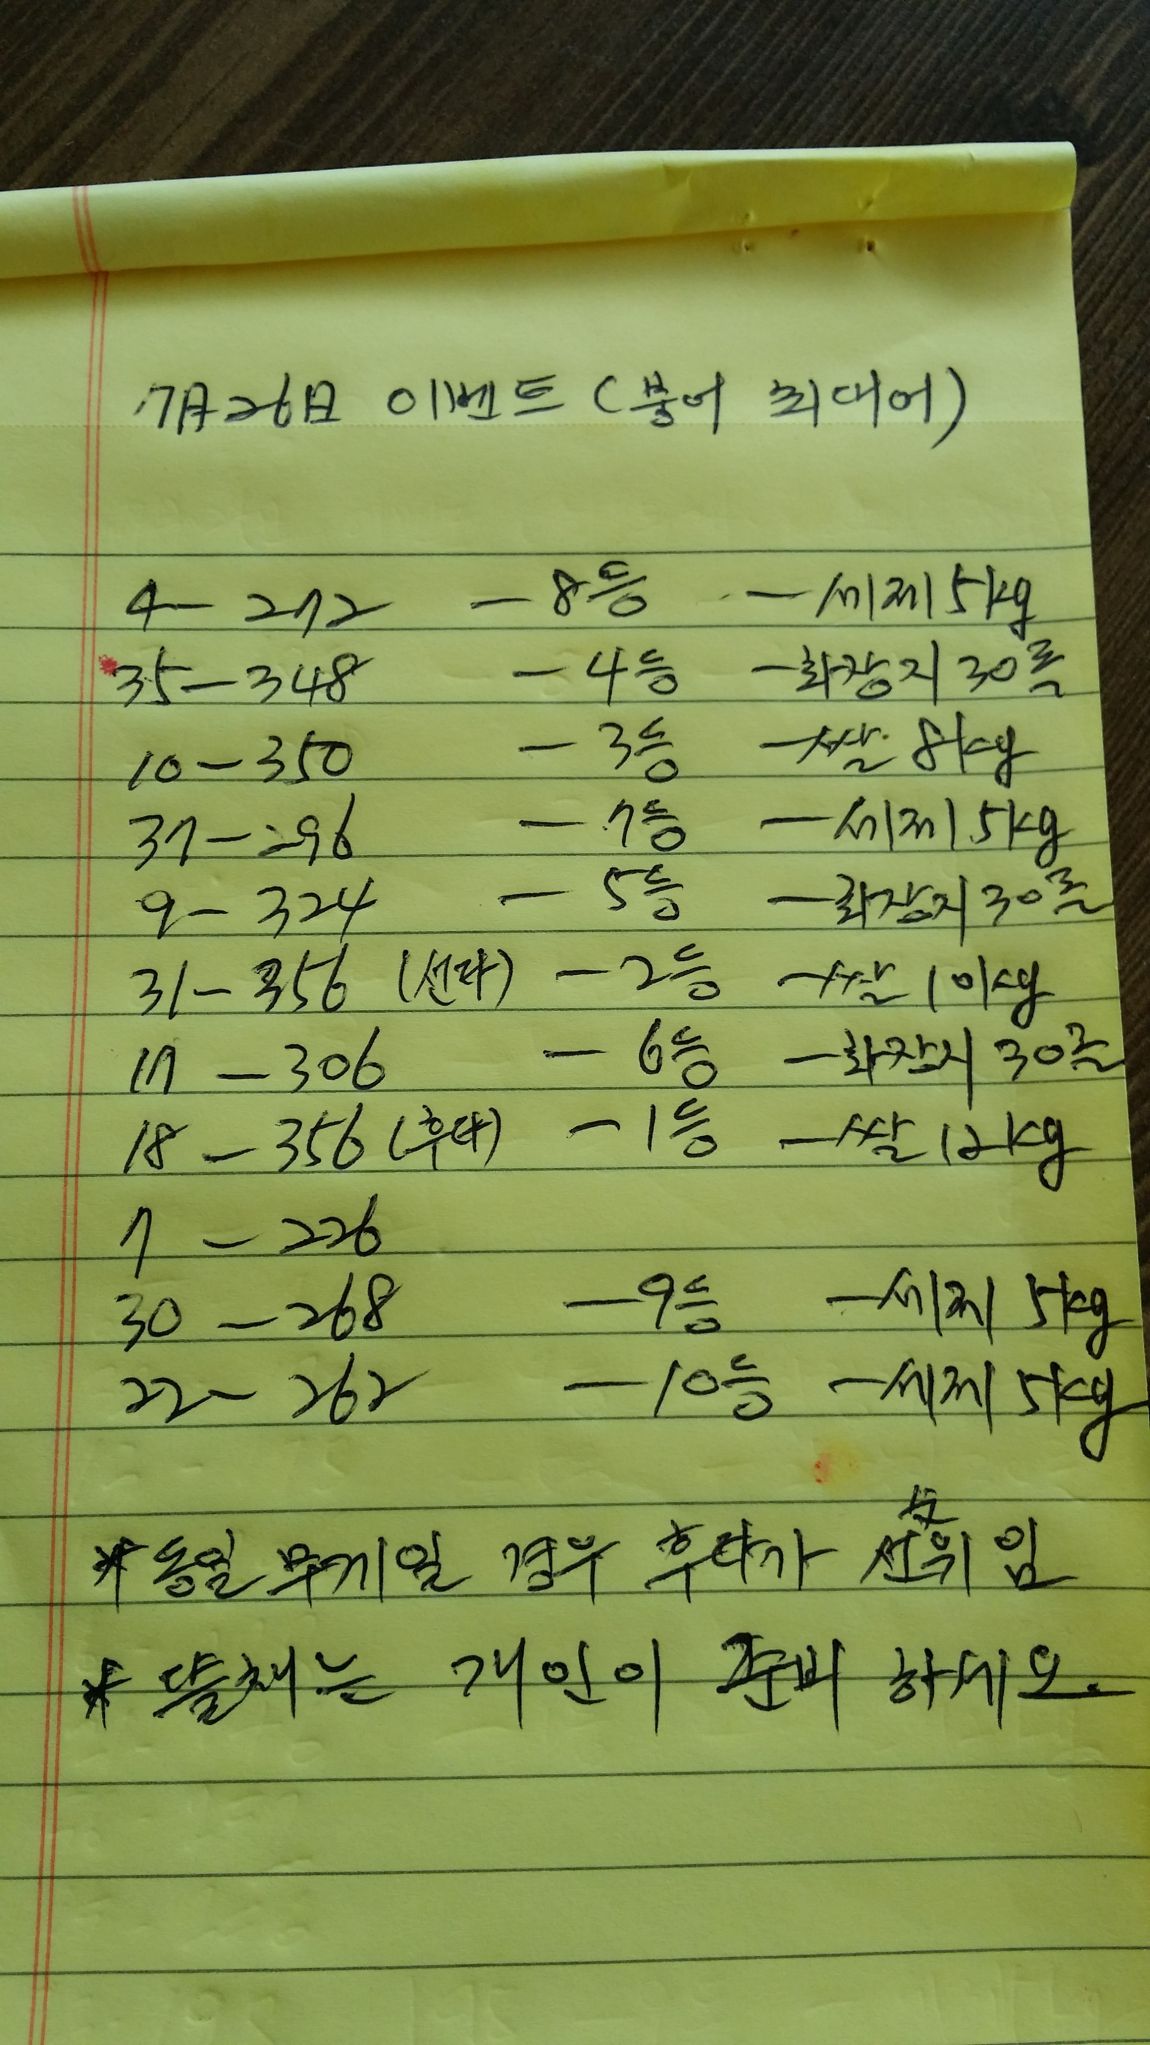 7月26日 이벤트 (붕어 최대어)
4 - 272 - 8등 - 세제 5kg
35 - 348 - 4등 - 화장지 30롤
10 - 350 - 3등 - 쌀 8kg
37 - 296 - 7등 - 세제 5kg
9 - 324 - 5등 - 화장지 30롤
31 - 356 (선타) - 2등 - 쌀 10kg
17 - 306 - 6등 - 화장지 30롤
18 - 356 (후타) - 1등 - 쌀 12kg
7 - 226
30 - 268 - 9등 - 세제 5kg
22 - 262 - 10등 - 세제 5kg
* 동일 무게일 경우 후타가 선위 임
* 뜰채는 개인이 준비 하세요.